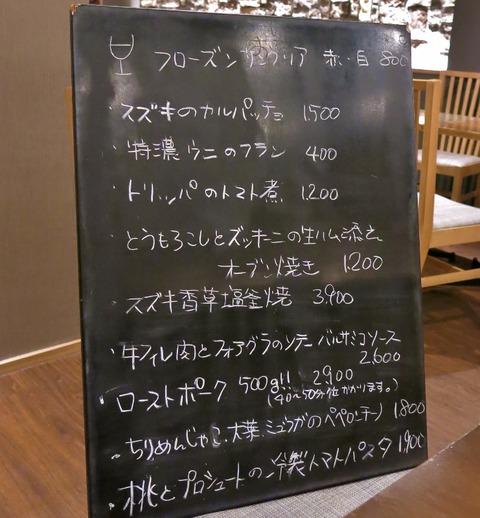 フローズンサングリア 赤・白 800
・スズキのカルパッチョ 1500
・特濃ウニのフラン 400
・トリッパのトマト煮 1.200
・とうもろこしとズッキーニの生ハム添え
オーブン焼き 1.200
・スズキ香草塩釜焼 3.900
・牛フィレ肉とフォアグラのソテー バルサミコソース
2.600
・ローストポーク 500g!! 2.900
(40〜50分位かかります。)
・ちりめんじゃこ.大葉.ミョウガのペペロンチーノ 1.800
・桃とプロシュートの冷製トマトパスタ 1.900